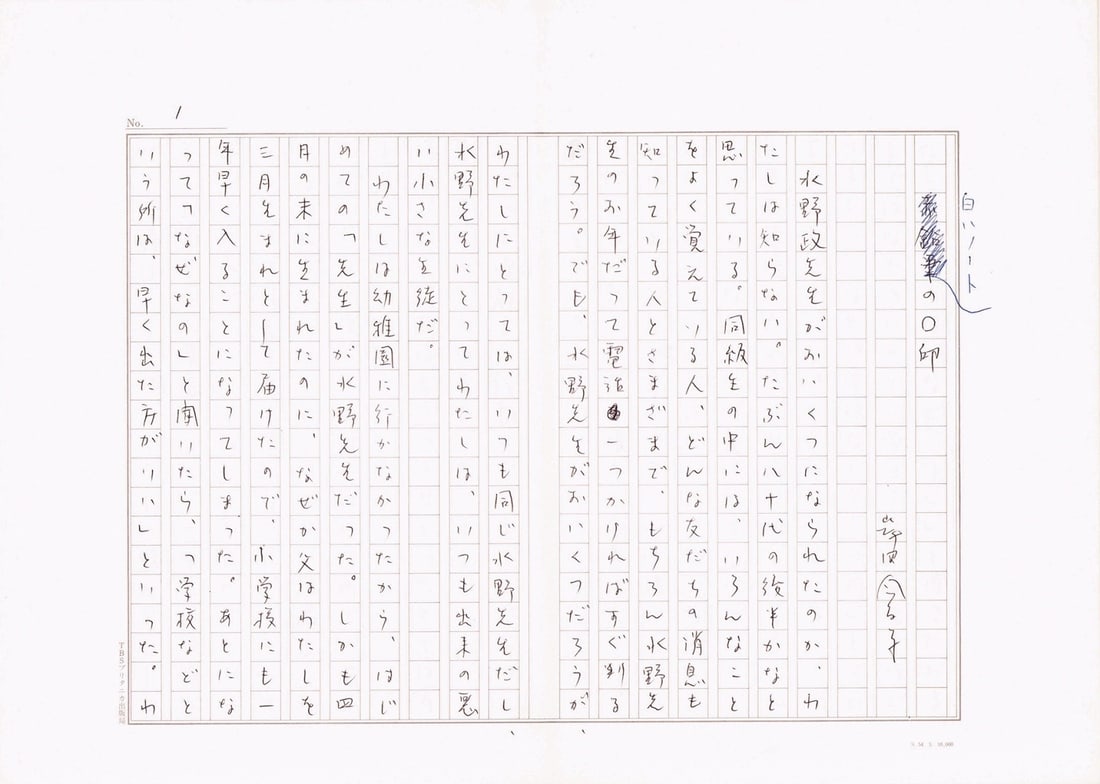 No. 1
白いノート
の〇印
岸田今日子
水野政先生がおいくつになられたのか、わ
たしは知らない。たぶん八十代の後半かなと
思っている。同級生の中には、いろんなこと
をよく覚えている人、どんな友だちの消息も
知っている人とさまざまで、もちろん水野先
生のお年だって電話一つかければすぐ判る
だろう。でも、水野先生がおいくつだろうが
わたしにとっては、いつも同じ水野先生だし
水野先生にとってわたしは、いつも出来の悪
い小さな生徒だ。
わたしは幼稚園に行かなかったから、はじ
めての「先生」が水野先生だった。しかも四
月の末に生まれたのに、なぜか父はわたしを
三月生まれとして届けたので、小学校にも一
年早く入ることになってしまった。あとにな
って「なぜなの」と聞いたら、「学校などと
いう所は、早く出た方がいい」といった。わ
TBSブリタニカ出版局
S. 54. 3. 10,000